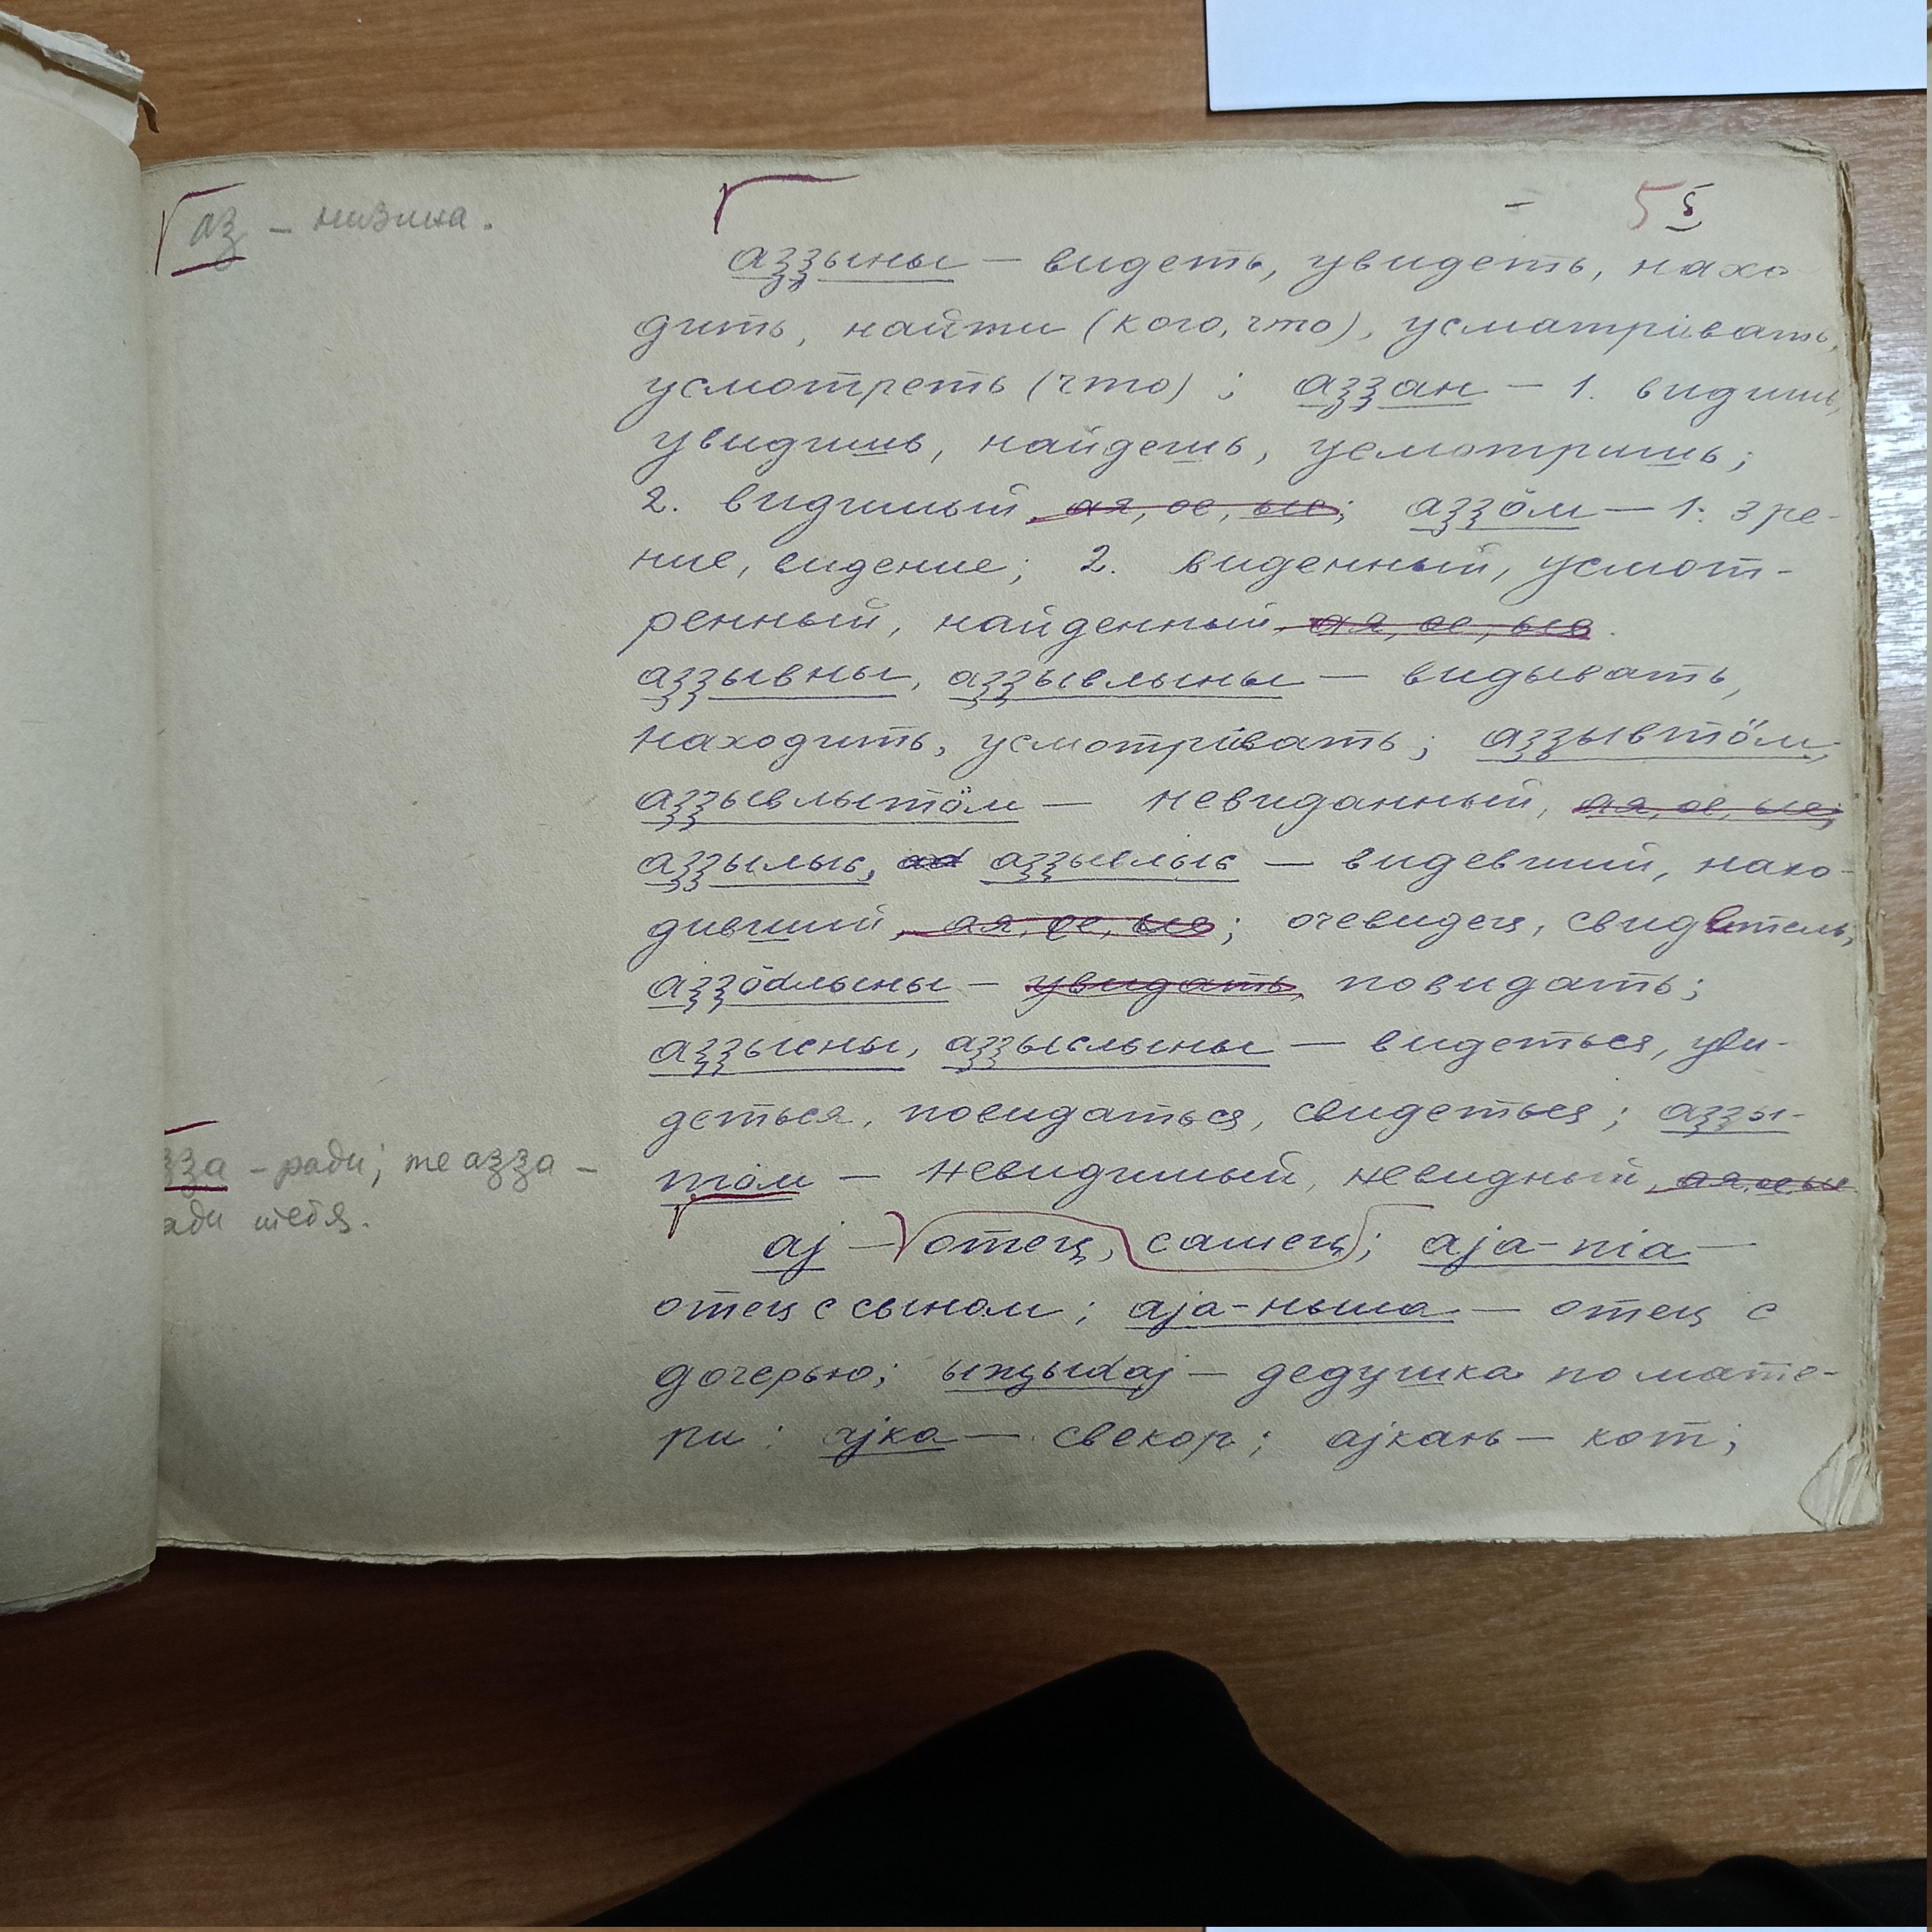 аҙ – низина.
5 5
аҙҙыны – видеть, увидеть, нахо
дить, найти (кого, что), усматривать,
усмотреть (что); аҙҙан – 1. видишь,
увидишь, найдешь, усмотришь;
2. видимый, ая, ое, ые; аҙҙӧм – 1. зре-
ние, видение; 2. виденный, усмот-
ренный, найденный, ая, ое, ые.
аҙҙывны, аҙҙывлыны – видывать,
находить, усмотривать; аҙҙывтӧм,
аҙҙывлытӧм – невиданный, ая, ое, ые;
аҙҙылыс, аҙҙывлыс – видевший, нахо-
дивший, ая, ое, ые; очевидец, свидетель;
аҙҙӧdлыны – увидать, повидать;
аҙҙысны, аҙҙыслыны – видеться, уви-
деться, повидаться, свидеться; аҙҙы-
тӧм – невидимый, невидный, ая, ое, ые
ҙҙа – ради; те аҙҙа –
ади тебя.
ај – отец, самец; аја-піа –
отец с сыном; аја-ныла – отец с
дочерью; ыҗыdај – дедушка по мате-
ри: ајка – свекор; ајкань – кот;